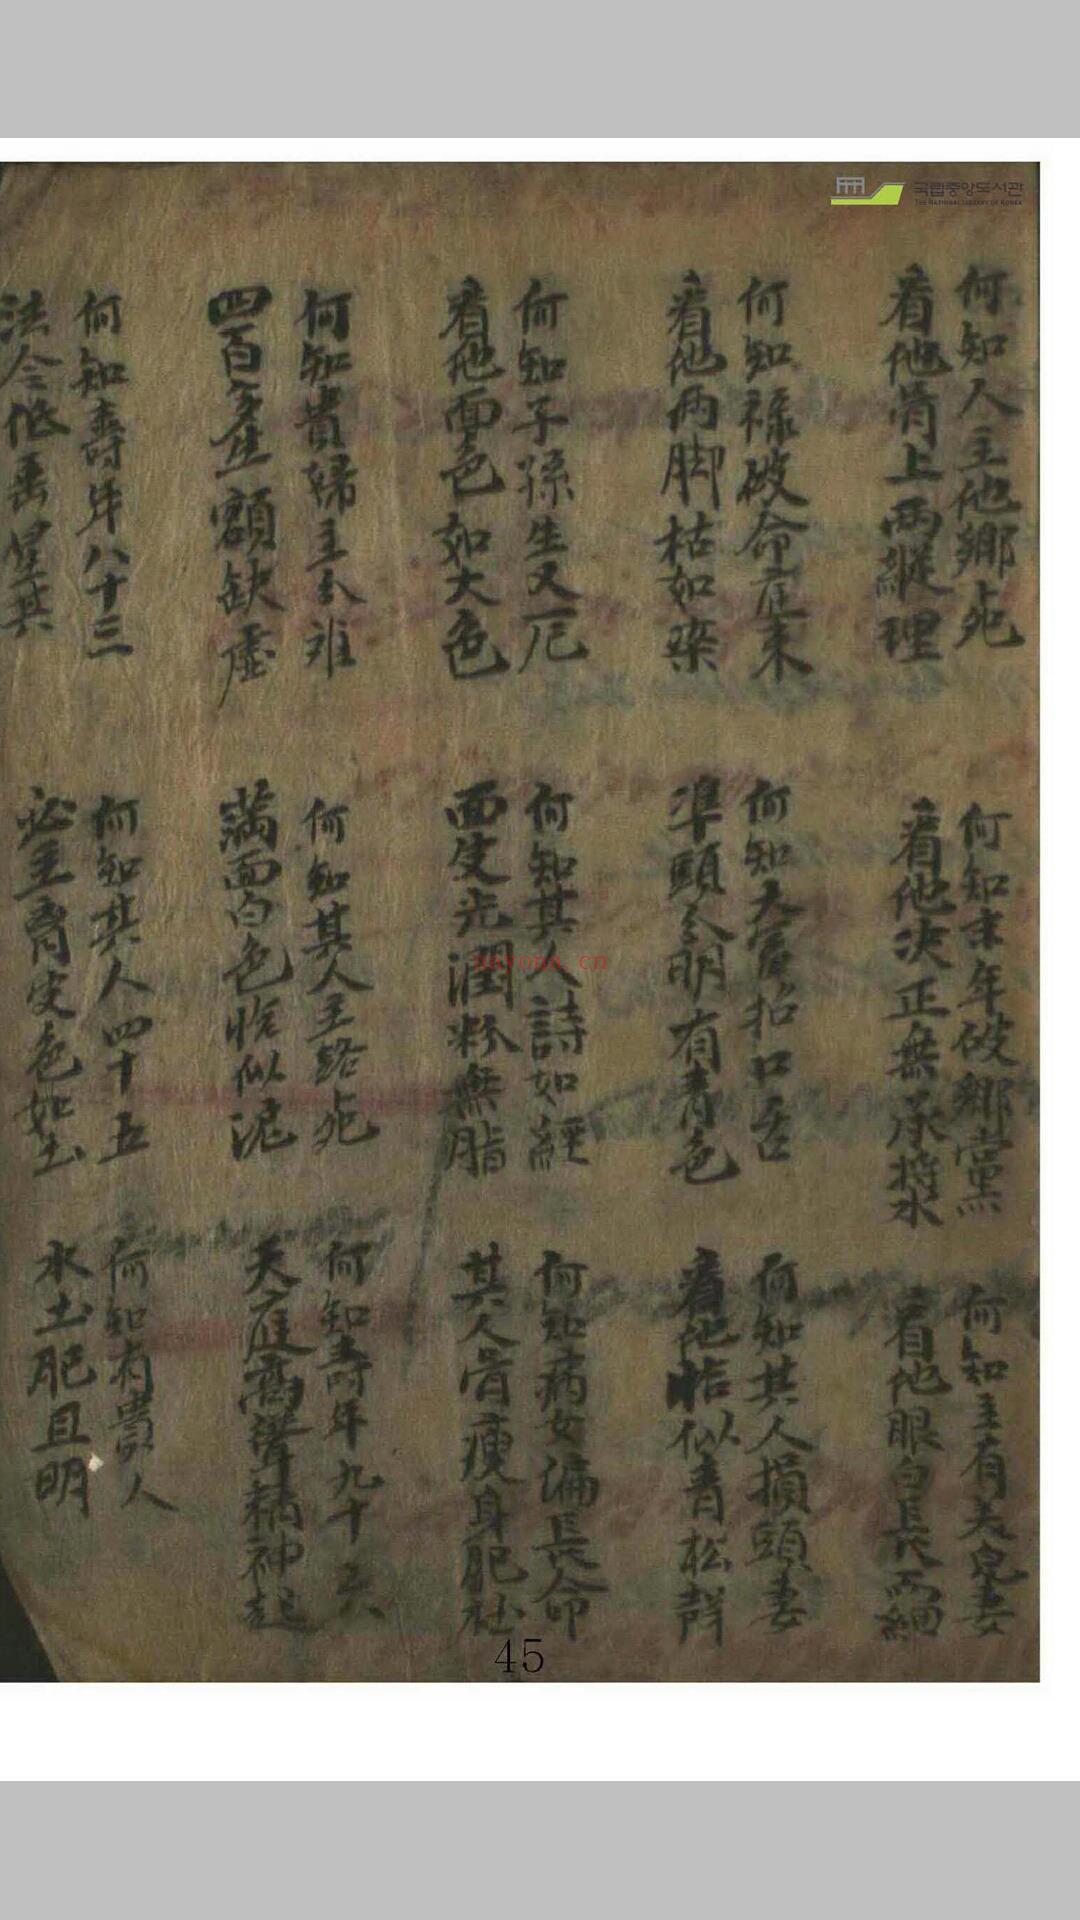 국립중앙도서관
THE NATIONAL LIBRARY OF KOREA
何知人主他鄉死
看他背上兩縱理
何知末年破鄉黨
看他決正無承將水
何知主有美皃妻
看他眼白長而細
何知祿破命in末
看他兩脚枯如柴
何知大富招口舌
準頭今明有青色
何知其人損頭妻
看他 似青松
何知子孫生又厄
看他面色如大色
何知其人詩如經
面皮光潤粉無脂
何知病女偏長命
其人骨瘦身肥
何知貴婦主合难
四百 生額缺虛
何知其人主路死
滿面白色恍似泥
何知壽年九十
天庭高聳精神起
何知壽年八十三
法令低垂
何知其人四十五
必主 皮色如土
何知有貴人
水土肥且明
45